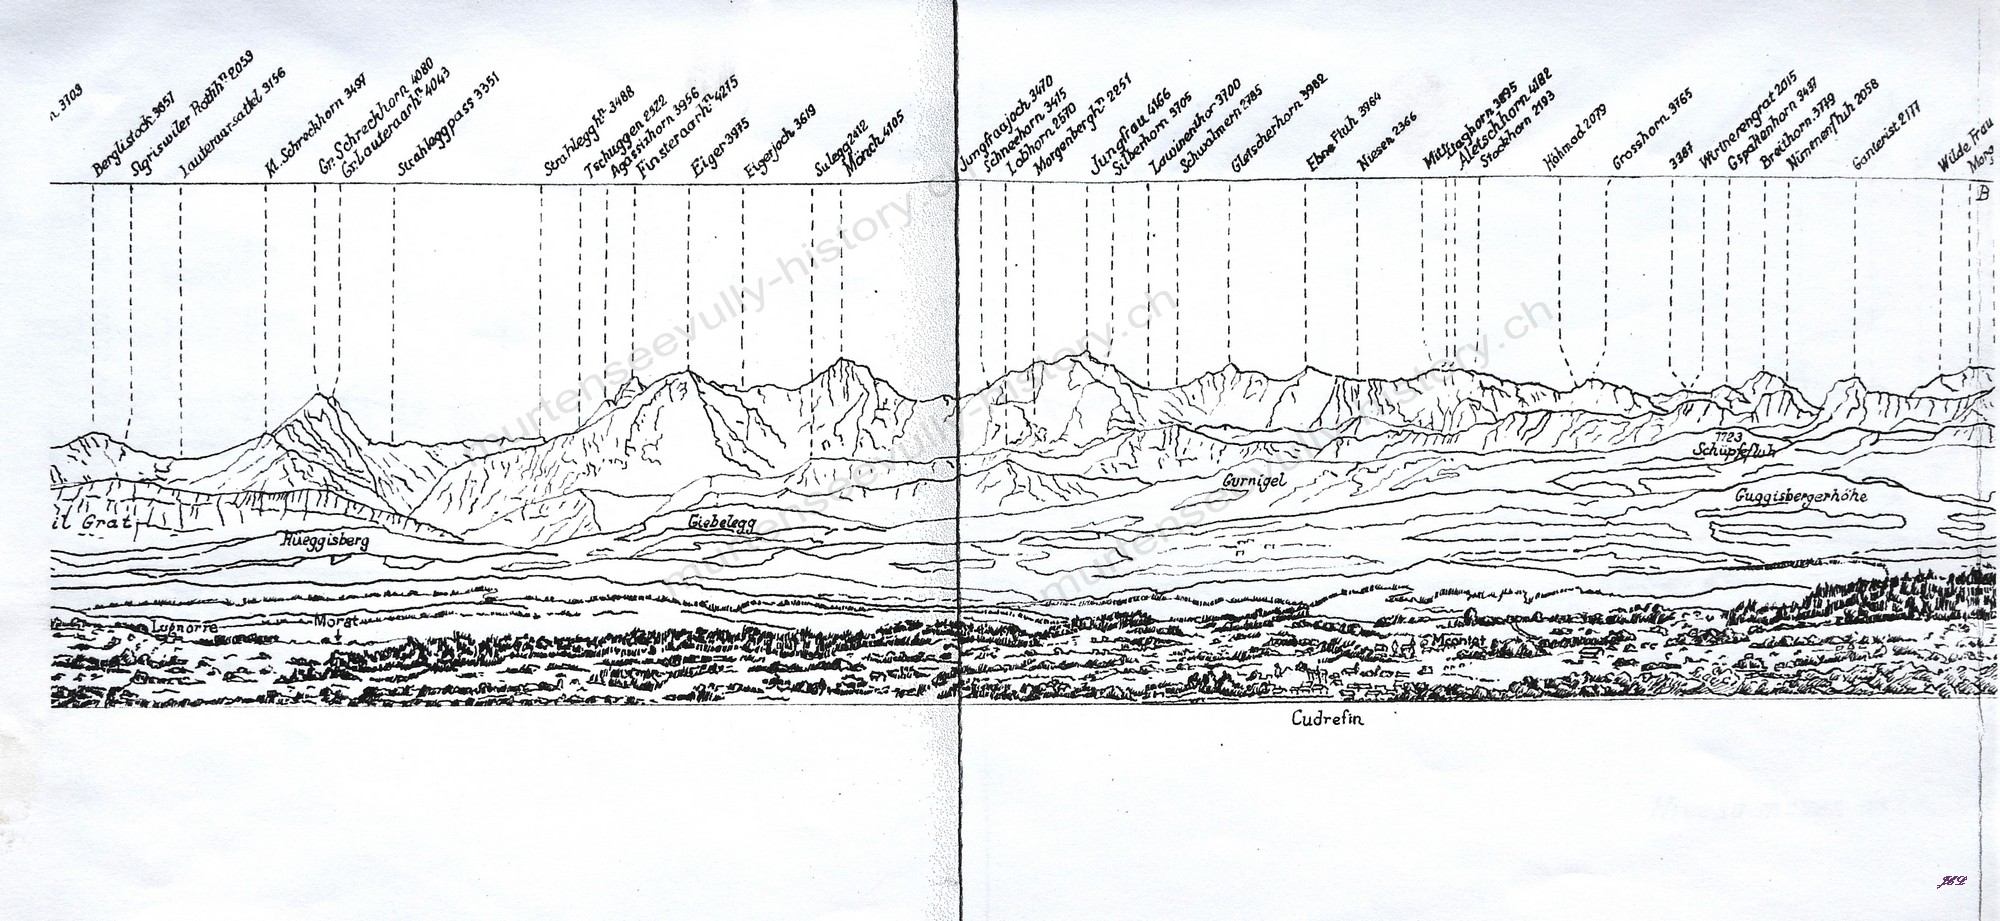 3703
Berglistock 3657
Sigriswiler Rothhn 2053
Lauteraarsattel 3156
Kl. Schreckhorn 3497
Gr. Schreckhorn 4080
Gr. Lauteraarhn 4043
Strahleggpass 3351
Strahlegghn 3488
Tschuggen 2522
Agassizhorn 3956
Finsteraarhn 4275
Eiger 3975
Eigerjoch 3619
Sulegg 2412
Mönch 4105
Jungfraujoch 3470
Schneehorn 3415
Lobhorn 2570
Morgenberghn 2251
Jungfrau 4166
Silberhorn 3705
Lowinenthor 3700
Schwalmern 2785
Gletscherhorn 3982
Ebne Fluh 3964
Niesen 2366
Mittaghorn 3895
Aletschhorn 4182
Stockhorn 2193
Hohmad 2079
Grosshorn 3765
3387
Wirtnerengrat 2015
Gspaltenhorn 3437
Breithorn 3779
Nünenenfluh 2058
Gantrist 2177
Wilde Frau
Morg
B
il Grat
Rüeggisberg
Giebelegg
Gurnigel
1723
Schüpfefluh
Guggisbergerhöhe
Lugnorre
Morat
Montet
Cudrefin
murtenseevully-history.ch
murtenseevully-history.ch
murtenseevully-history.ch
murtenseevully-history.ch